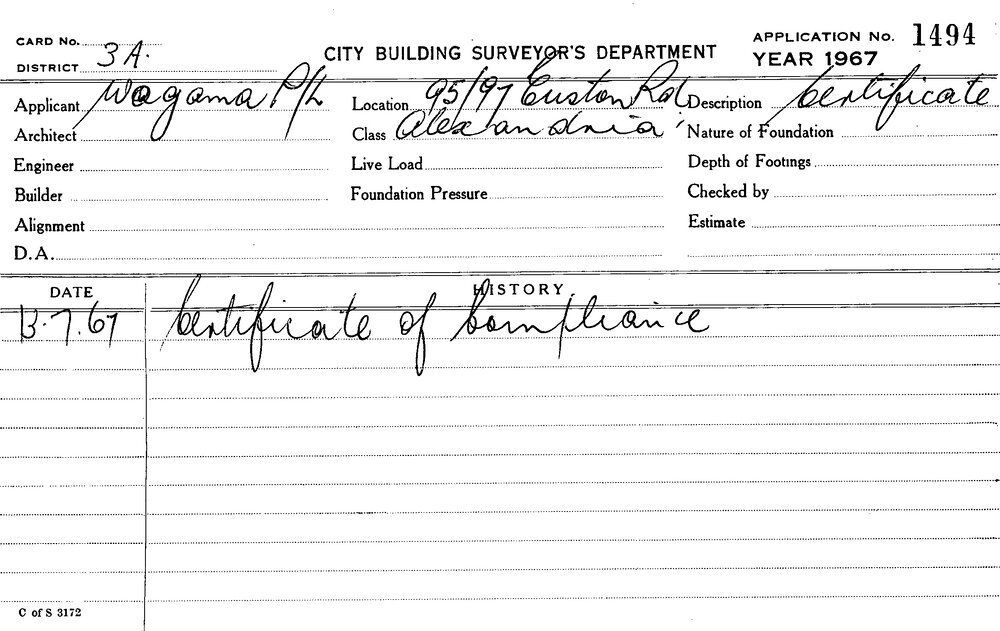 CARD No.
DISTRICT 3A.
CITY BUILDING SURVEYOR'S DEPARTMENT
APPLICATION No. 1494
YEAR 1967
Applicant Wagama P/L
Location 95/97 Euston Rd
Description Certificate
Architect
Class Alexandria
Nature of Foundation
Engineer
Live Load
Depth of Footings
Builder
Foundation Pressure
Checked by
Alignment
Estimate
D.A.
DATE HISTORY
13.7.67 Certificate of Compliance
C of S 3172